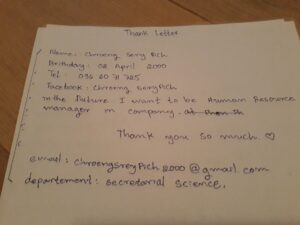 Thank Letter
Name : Chroeng Srey Pich
Birthday : 08 April 2000
Tel : 096 60 71 725
Facebook : Chroeng SreyPich
In the Future I want to be Human Resource
manager in company.
Thank you so much. ♡
email : chroengsreypich2000@gmail.com
departement : secretarial science.